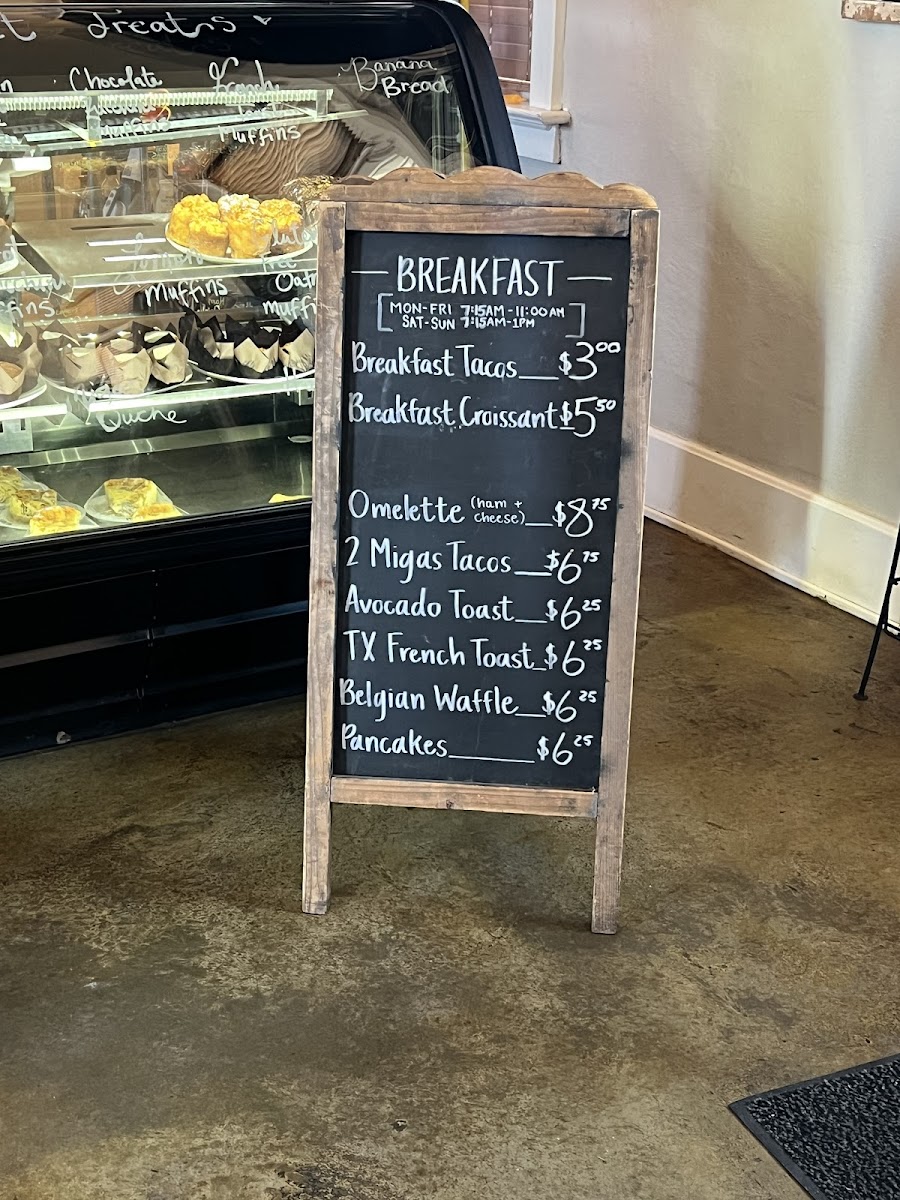 Treats
Chocolate
French
Banana
Bread
Muffins
Muffins
Muffins
Quiche
BREAKFAST
MON-FRI 7:15AM-11:00AM
SAT-SUN 7:15AM-1PM
Breakfast Tacos $3.00
Breakfast Croissant $5.50
Omelette (ham + cheese) $8.75
2 Migas Tacos $6.75
Avocado Toast $6.25
TX French Toast $6.25
Belgian Waffle $6.25
Pancakes $6.25